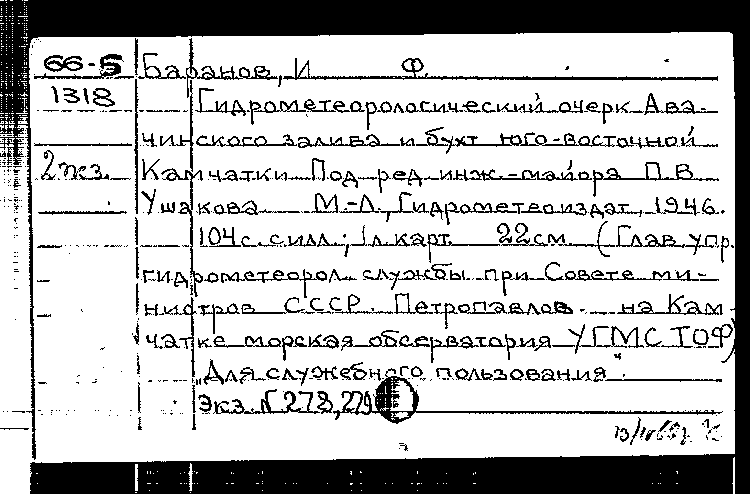 66-5 Баранов, И Ф.
1318 Гидрометеорологический очерк Ава-
чинского залива и бухт юго-восточной
2 экз. Камчатки Под ред. инж.-майора П.В.
Ушакова М.-Л., Гидрометеоиздат, 1946.
104 с. с илл.; 1 л. карт. 22 см (Глав. упр.
гидрометеорол. службы при Совете ми-
нистров СССР. Петропавлов. на Кам-
чатке морская обсерватория УГМС ТОФ)
"Для служебного пользования".
Экз. № 278, 279